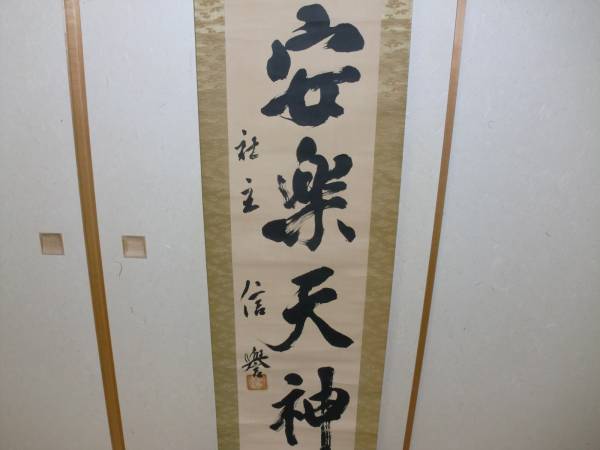 安楽天神
社主 信誉